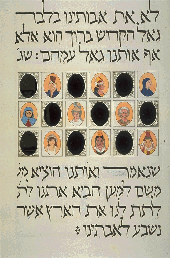 לא את אבותינו בלבד
גאל הקדוש ברוך הוא אלא
אף אותנו גאל עמהם: שנ
שנאמר ואותנו הוציא מ
משם למען הביא אתנו לת
לתת לנו את הארץ אשר
נשבע לאבתינו: